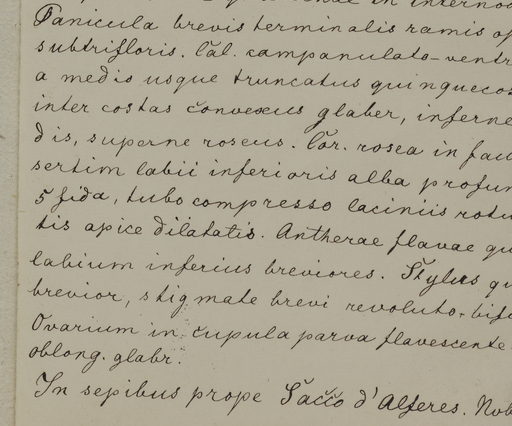 in interno
Panicula brevis terminalis ramis op
subtrifloris. Cal. campanulato-ventr
a medio usque truncatus quinquecos
inter costas convexus glaber, inferne
dis, superne roseus. Cor. rosea in fau
sertim labii inferioris alba profun
5 fida, tubo compresso laciniis rotu
tis apice dilatatis. Antherae flavae qu
labium inferius breviores. Stylus qu
brevior, stigmate brevi revoluto-bifi
Ovarium in cupula parva flavescente
oblong. glabr.
In sepibus prope Sacco d'Alferes. Nob